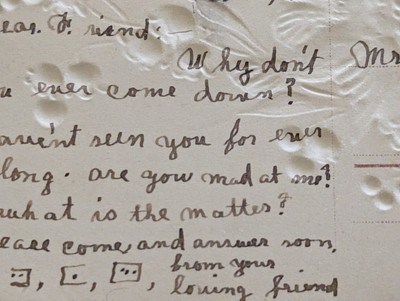 ear. Friend:
Why don't
u ever come down?
aven't seen you for ever
long. are you mad at me?
what is the matter?
ease come and answer soon.
from your
loving friend
Mr